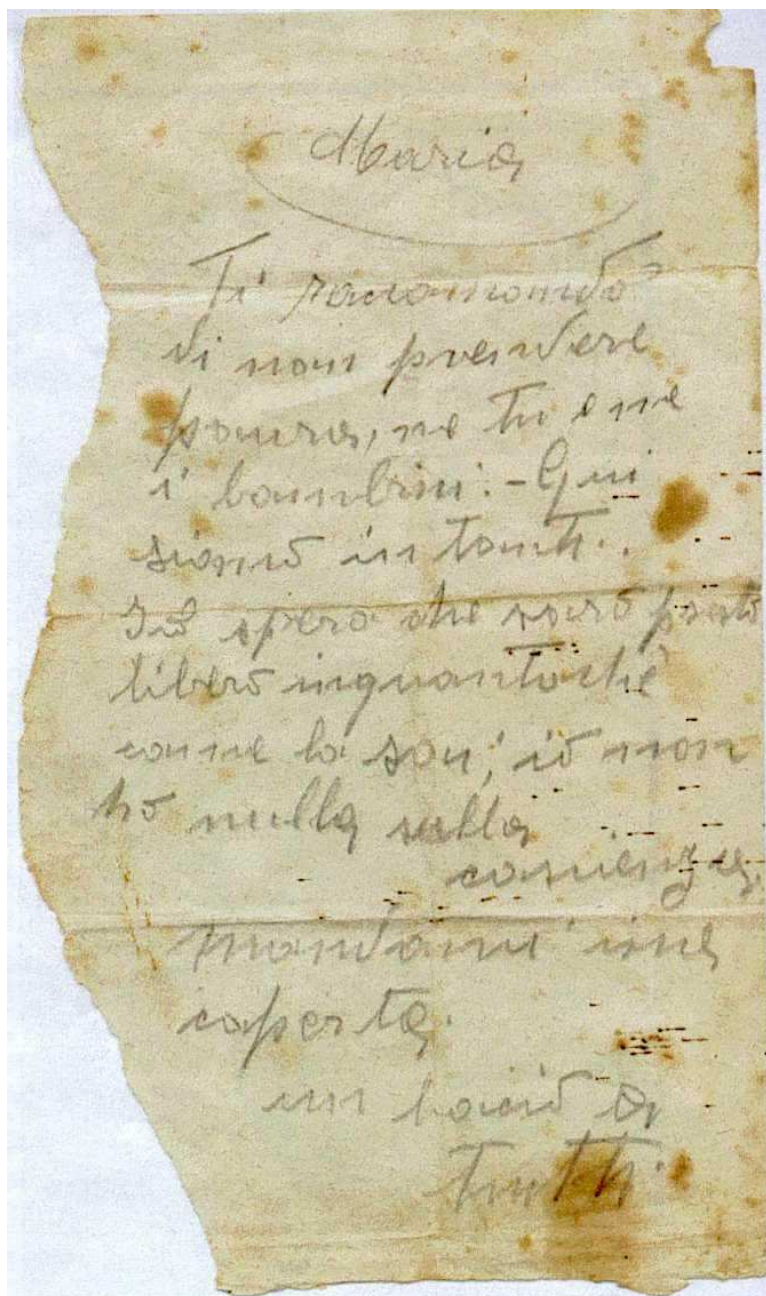 Maria
Ti raccomando
di non prendere
paura, ne tu e ne
i bambini. - Qui
siamo in tanti..
Io spero che sarò presto
libero inquantochè
come lo sai, io non
ho nulla sulla
coscienza.
mandami una
coperta.
un bacio a
tutti.